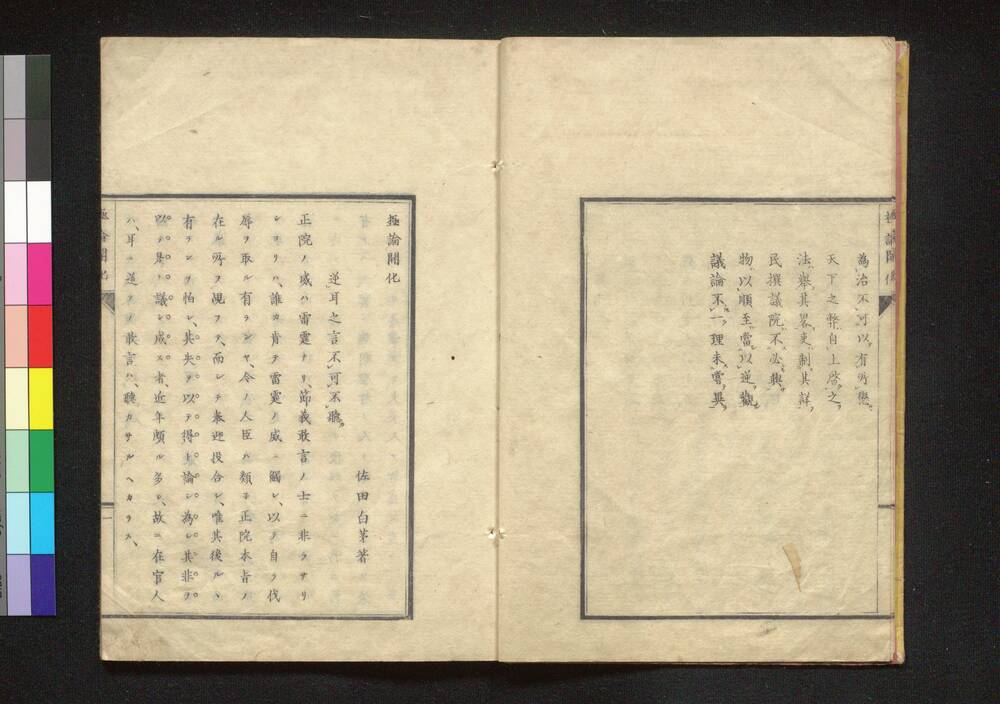 為治不可以有所戀。
天下之弊自上啓之。
法舉其畧吏制其詳。
民撰議院不必興。
物以順至當以逆觀。
議論不一。理未嘗異。
極論開化
極論開化
佐田白茅著
逆耳之言不可不聽。
正院ノ威ハ雷霆ナリ、節義敢言ノ士ニ非ラサリ
シヨリハ、誰カ肯テ雷霆ノ威ニ觸レ、以テ自ラ伐
辱ヲ取ル有ランヤ、今ノ人臣ハ類子正院本旨ノ
在ル所ヲ覗フテ、而シテ奉迎投合シ、唯其後ルヽ
有ランヲ怕レ、其失ヲ以テ得ト論シ為シ其非ヲ
以テ是ト議シ成ス者、近年頗ル多シ、故ニ在官人
ハ、耳ニ逆フノ敢言ハ、聽カサルヘカラス、
極論開化
一